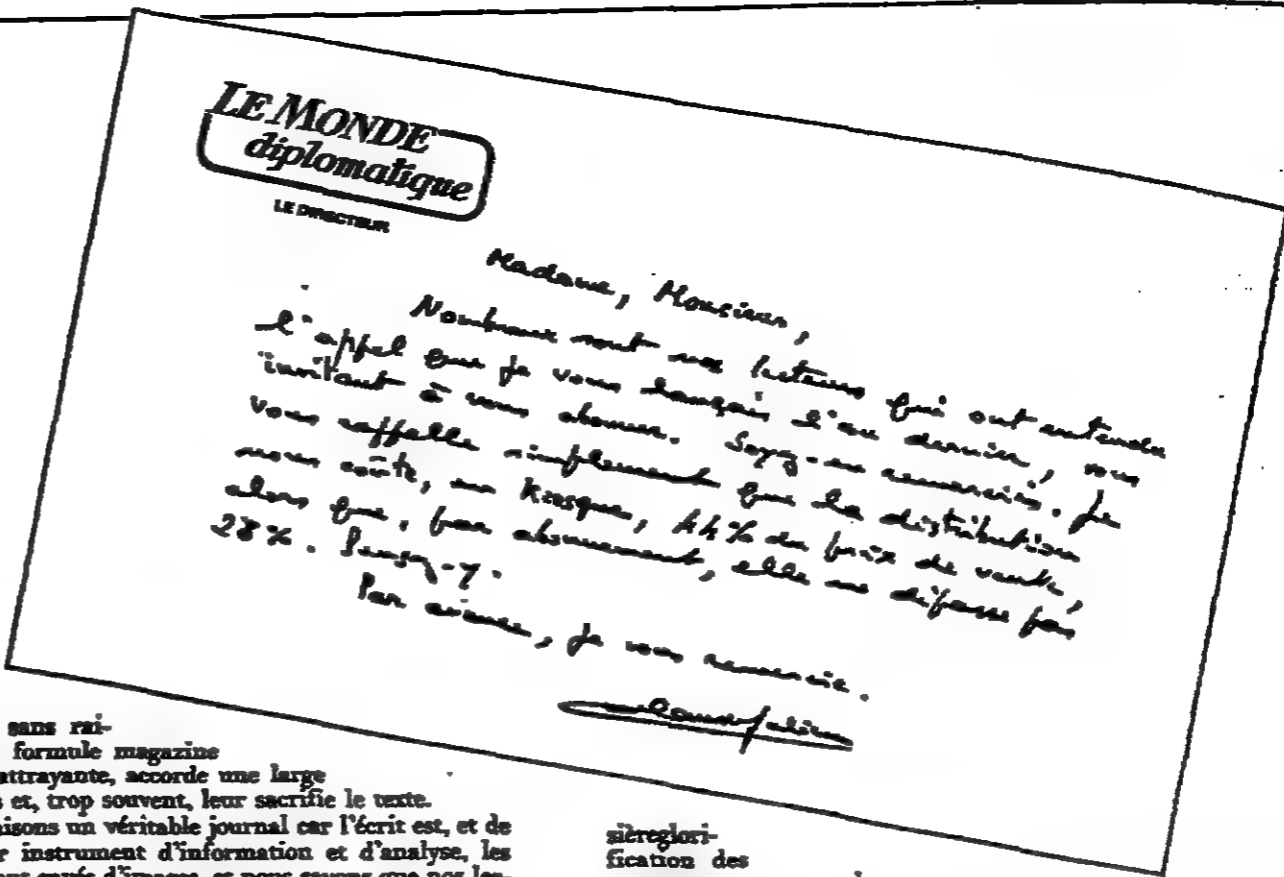 LE MONDE
diplomatique
LE DIRECTEUR
Madame, Monsieur,
Nombreux sont nos lecteurs qui ont entendu
l'appel que je vous lançais l'an dernier, vous
invitant à vous abonner. Soyez-en remerciés. Je
vous rappelle simplement que la distribution
nous coûte, en kiosques, 44% du prix de vente,
alors que, par abonnement, elle ne dépasse pas
28%. Pensez-y.
Par avance, je vous remercie.
sans rai-
formule magazine
attrayante, accorde une large
et, trop souvent, leur sacrifie le texte.
isons un véritable journal car l'écrit est, et de
r instrument d'information et d'analyse, les
d'images, et nous savons que nos lec-
sièreglori-
fication des